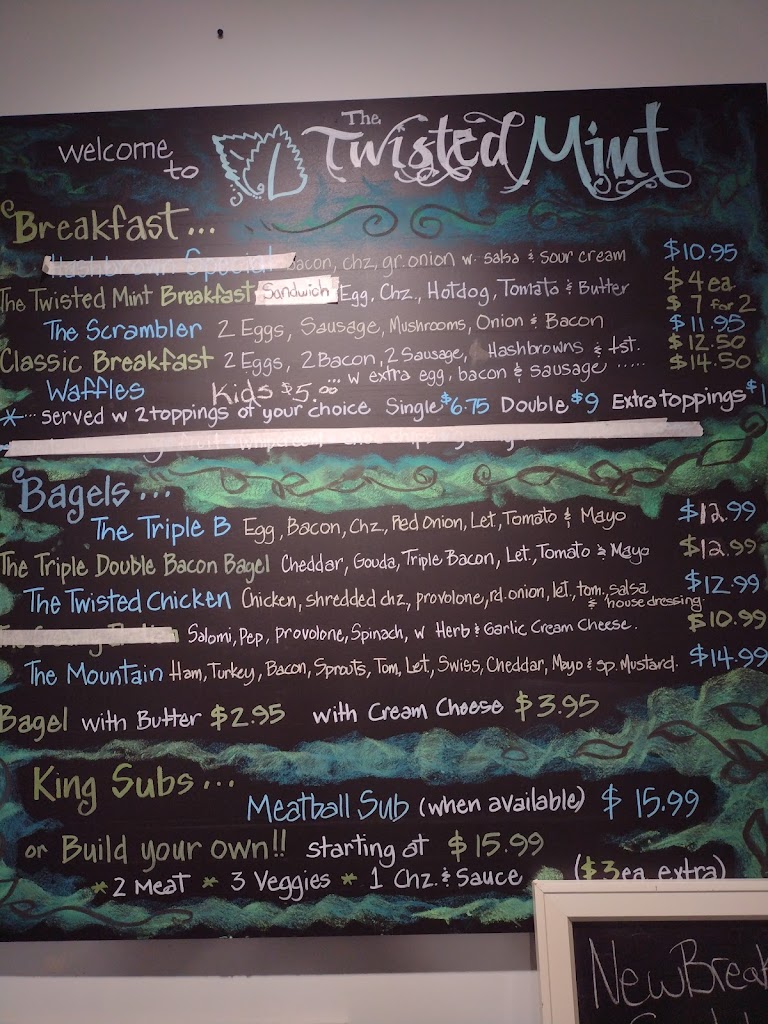 welcome to The Twisted Mint
Breakfast...
Hashbrown Special Bacon, chz, gr. onion w. salsa & sour cream $10.95
The Twisted Mint Breakfast Sandwich Egg, Chz., Hotdog, Tomato & Butter $4 ea
$7 for 2
The Scrambler 2 Eggs, Sausage, Mushrooms, Onion & Bacon $11.95
Classic Breakfast 2 Eggs, 2 Bacon, 2 Sausage, Hashbrowns & tst. $12.50
... w extra egg, bacon & sausage ..... $14.50
Waffles Kids $5.00
*... served w 2 toppings of your choice Single $6.75 Double $9 Extra toppings $1
Bagels...
The Triple B Egg, Bacon, Chz, Red Onion, Let, Tomato & Mayo $12.99
The Triple Double Bacon Bagel Cheddar, Gouda, Triple Bacon, Let, Tomato & Mayo $12.99
The Twisted Chicken Chicken, shredded chz, provolone, rd. onion, let, tom, salsa $12.99
& house dressing.
Salomi, Pep, Provolone, Spinach, w Herb & Garlic Cream Cheese. $10.99
The Mountain Ham, Turkey, Bacon, Sprouts, Tom, Let, Swiss, Cheddar, Mayo & sp. Mustard. $14.99
Bagel with Butter $2.95 with Cream Cheese $3.95
King Subs...
Meatball Sub (when available) $15.99
or Build your own!! starting at $15.99
* 2 Meat * 3 Veggies * 1 Chz. & Sauce ($3 ea extra)
New Break